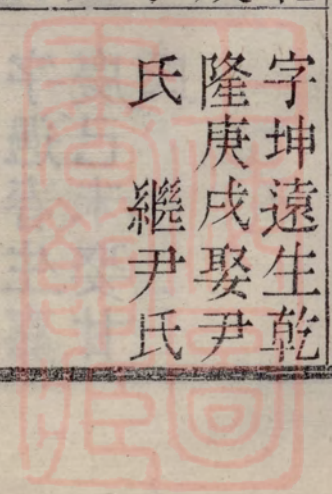 字坤遠生乾
隆庚戌娶尹
氏　繼尹氏